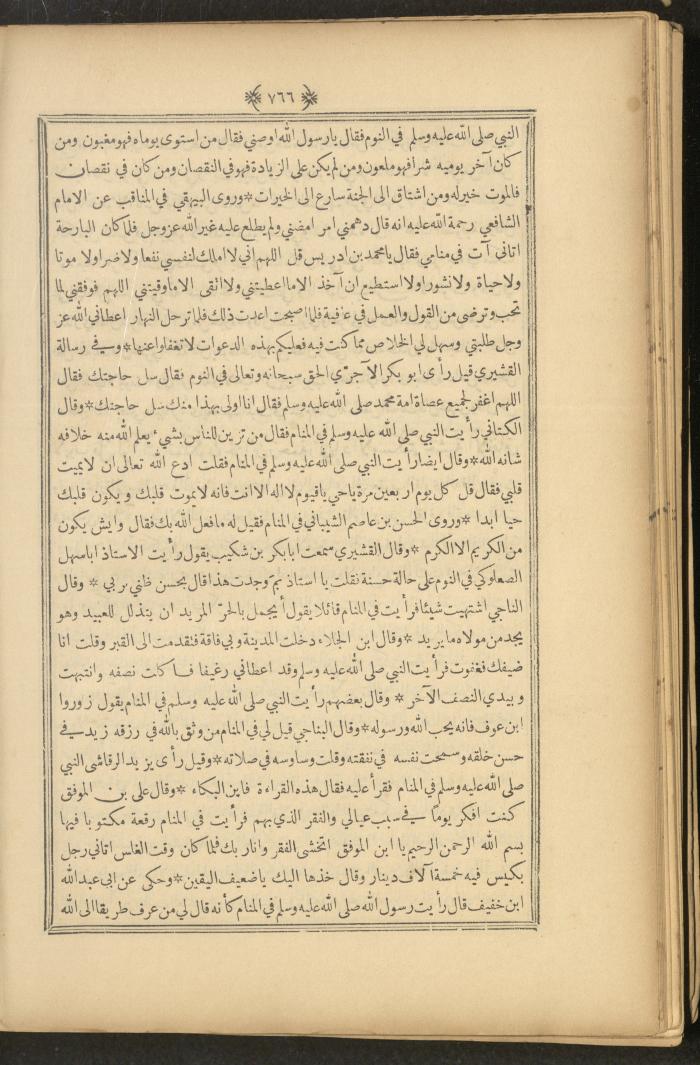 ٧٦٦
النبي صلى الله عليه وسلم في النوم فقال يارسول الله اوصني فقال من استوى يوماه فهو مغبون ومن
كان آخر يوميه شرا فهو ملعون ومن لم يكن على الزيادة فهو في النقصان ومن كان في نقصان
فالموت خير له ومن اشتاق الى الجنة سارع الى الخيرات * وروى البيهقي في المناقب عن الامام
الشافعي رحمة الله عليه انه قال دهمني امر امضني ولم يطلع عليه غير الله عز وجل فلما كان البارحة
اتانى آت في منامي فقال يا محمد بن ادريس قل اللهم اني لا املك لنفسي نفعا ولا ضرا ولا موتا
ولا حياة ولا نشورا ولا استطيع ان آخذ الا ما اعطيتني ولا اتقى الا ما وقيتني اللهم فوفقني لما
تحب وترضى من القول والعمل في عافية فلما اصبحت اعدت ذلك فلما ترحل النهار اعطاني الله عز
وجل طلبتي وسهل لي الخلاص مما كنت فيه فعليكم بهذه الدعوات لا تغفلوا عنها * وفي رسالة
القشيري قيل رأى ابو بكر الآجري الحق سبحانه وتعالى في النوم فقال سل حاجتك فقال
اللهم اغفر لجميع عصاة امة محمد صلى الله عليه وسلم فقال انا اولى بهذا منك سل حاجتك * وقال
الكتاني رأيت النبي صلى الله عليه وسلم في المنام فقال من تزين للناس بشيء يعلم الله منه خلافه
شانه الله * وقال ايضا رأيت النبي صلى الله عليه وسلم في المنام فقلت ادع الله تعالى ان لا يميت
قلبي فقال قل كل يوم اربعين مرة ياحي ياقيوم لا اله الا انت فانه لا يموت قلبك ويكون قلبك
حيا ابدا * وروى الحسن بن عاصم الشيباني في المنام فقيل له ما فعل الله بك فقال وايش يكون
من الكريم الا الكرم * وقال القشيري سمعت ابا بكر بن شكيب يقول رأيت الاستاذ ابا سهل
الصعلوكي في النوم على حالة حسنة نقلت يا استاذ بم وجدت هذا قال بحسن ظني بربي * وقال
الناجي اشتهيت شيئا فرأيت في المنام قائلا يقول أيجمل بالحر المريد ان يتذلل للعبيد وهو
يجد من مولاه ما يريد * وقال ابن الجلاء دخلت المدينة وبي فاقة فتقدمت الى القبر وقلت انا
ضيفك فغفوت فرأيت النبي صلى الله عليه وسلم وقد اعطاني رغيفا فاكلت نصفه وانتبهت
وبيدي النصف الآخر * وقال بعضهم رأيت النبي صلى الله عليه وسلم في المنام يقول زوروا
ابن عوف فانه يحب الله ورسوله * وقال البناجي قيل لي في المنام من وثق بالله في رزقه زيد في
حسن خلقه وسمحت نفسه في نفقته وقلت وساوسه في صلاته * وقيل رأى يزيد الرقاشى النبي
صلى الله عليه وسلم في المنام فقرأ عليه فقال هذه القراءة فاين البكاء * وقال على بن الموفق
كنت افكر يومًا في سبب عيالي والفقر الذي بهم فرأيت في المنام رقعة مكتوبا فيها
بسم الله الرحمن الرحيم يا ابن الموفق اتخشى الفقر وانا ربك فلما كان وقت الغلس اتاني رجل
بكيس فيه خمسة آلاف دينار وقال خذها اليك ياضعيف اليقين * وحكى عن ابى عبد الله
ابن خفيف قال رأيت رسول الله صلى الله عليه وسلم في المنام كأنه قال لي من عرف طريقا الى الله